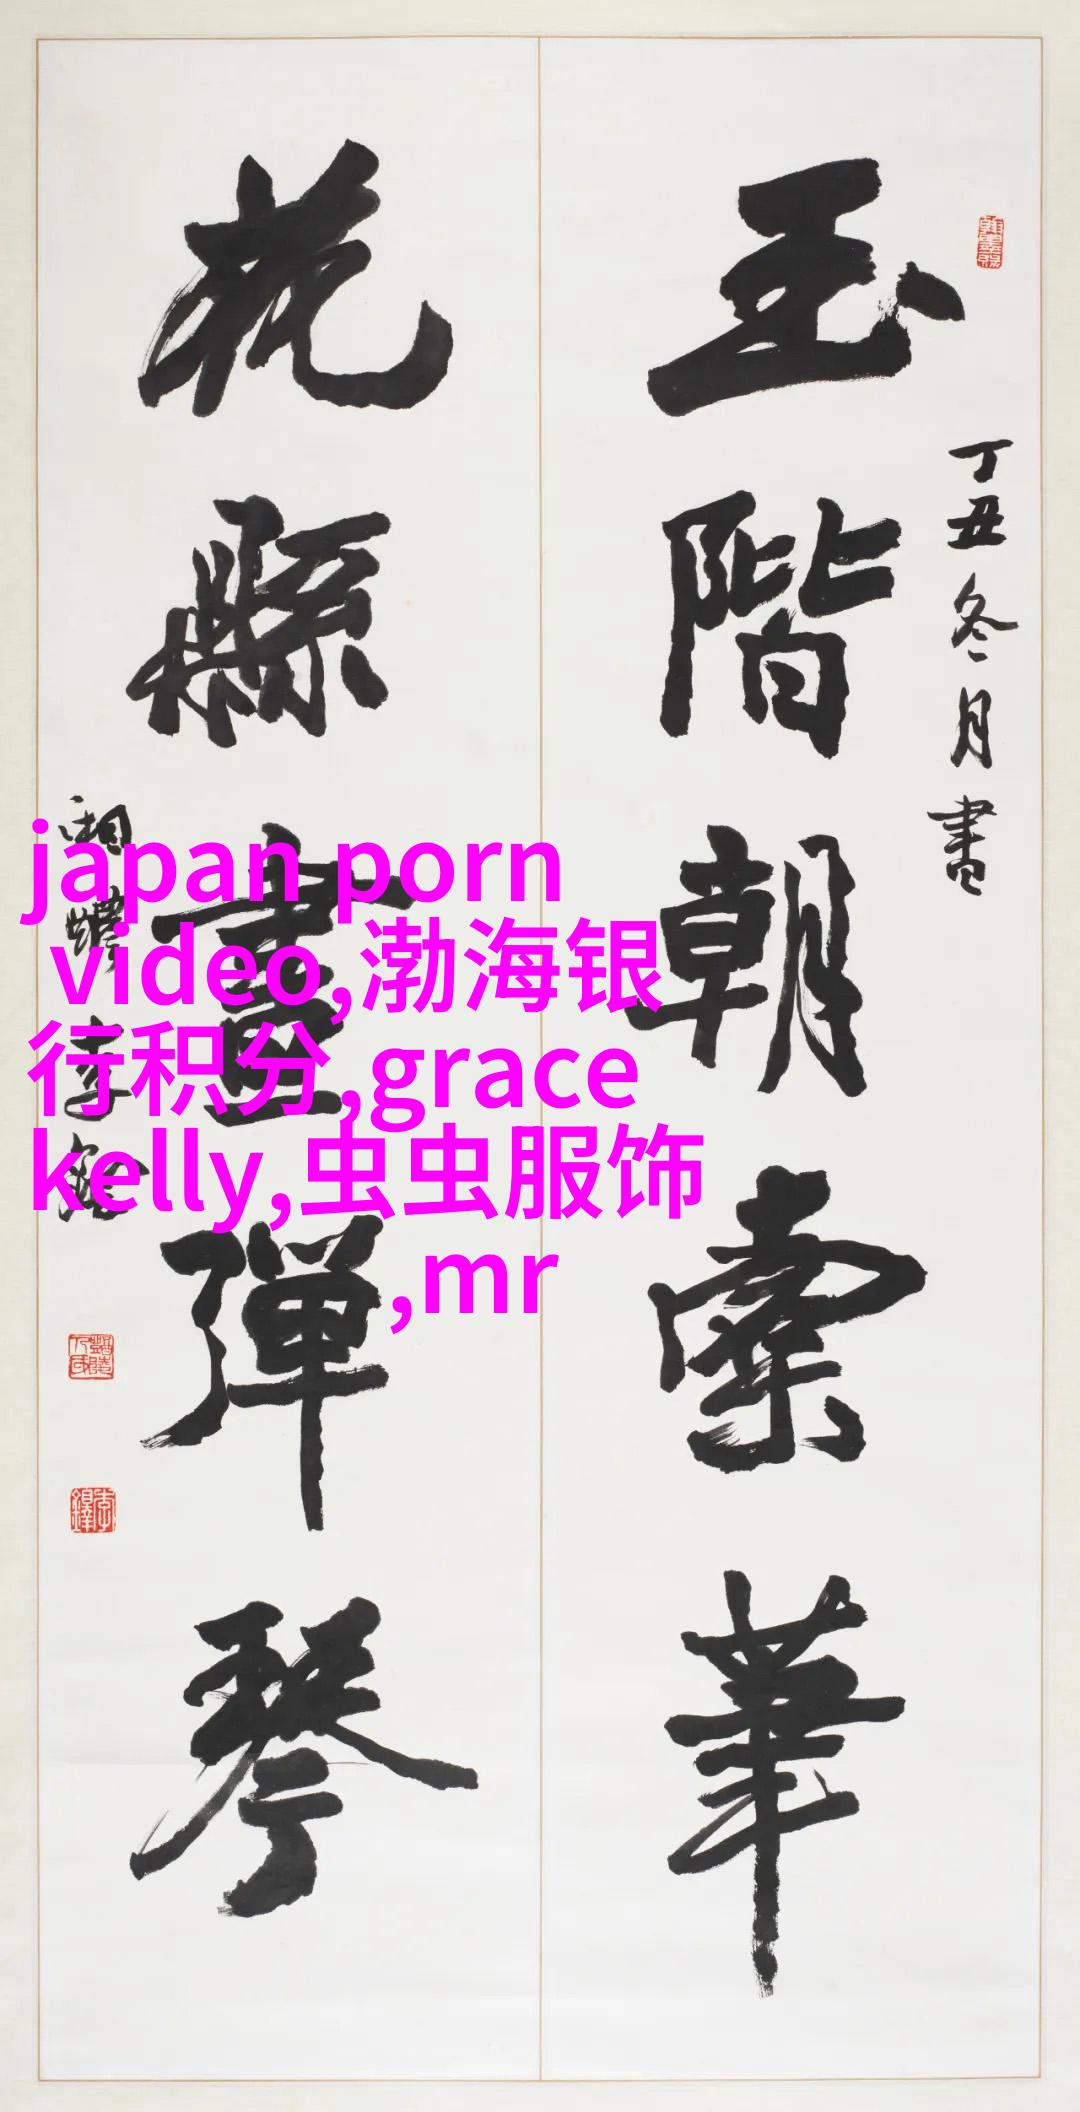 丁丑冬月書
玉階朝橐筆
花縣晝彈琴
湘醴李鐸
japan porn
video,渤海银
行积分,grace
kelly,虫虫服饰
,mr